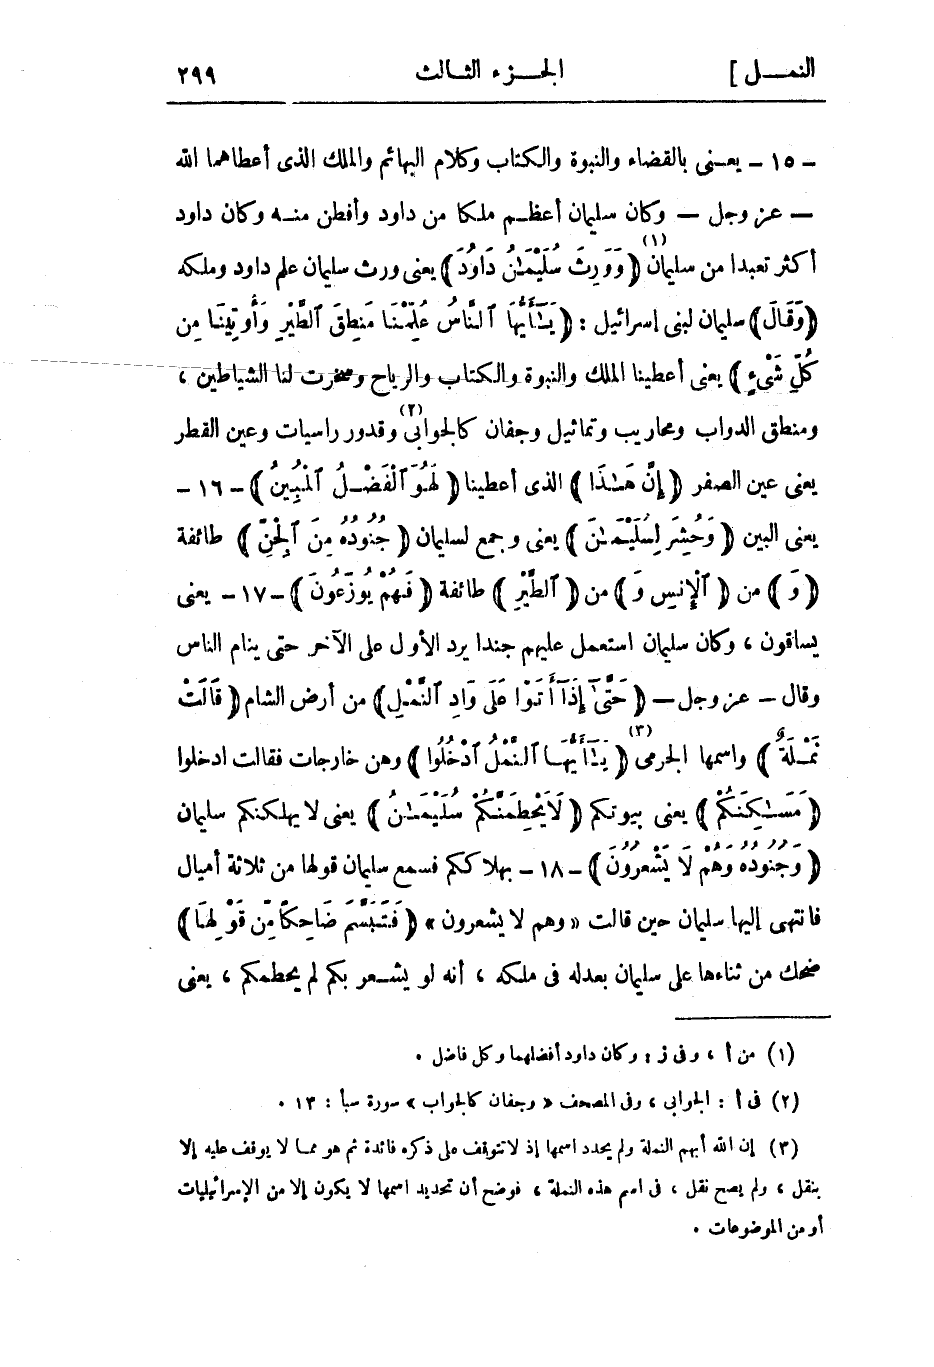 النمــل ]
الجــزء الثالث
٢٩٩
ــ ١٥ ــ يعــنى بالقضاء والنبوة والكتاب وكلام البهائم والملك الذى أعطاهما الله
ــ عز وجل ــ وكان سليمان أعظـم ملكا من داود وأفطن منـه وكان داود
أكثر تعبدا من سليمان (١) ﴿ وَوَرِثَ سُلَيْمَٰنُ دَاوُدَ ﴾ يعنى ورث سليمان علم داود وملكه
﴿ وَقَالَ ﴾ سليمان لبنى إسرائيل : ﴿ يَٰٓأَيُّهَا ٱلنَّاسُ عُلِّمْنَا مَنطِقَ ٱلطَّيْرِ وَأُوتِينَا مِن
كُلِّ شَىْءٍ ﴾ يعنى أعطينا الملك والنبوة والكتاب والرياح وسخرت لنا الشياطين ،
ومنطق الدواب ومحاريب وتماثيل وجفان كالجوابى (٢) وقدور راسيات وعين القطر
يعنى عين الصفر ﴿ إِنَّ هَٰذَا ﴾ الذى أعطينا ﴿ لَهُوَ ٱلْفَضْلُ ٱلْمُبِينُ ﴾ ــ ١٦ ــ
يعنى البين ﴿ وَحُشِرَ لِسُلَيْمَٰنَ ﴾ يعنى وجمع لسليمان ﴿ جُنُودُهُ مِنَ ٱلْجِنِّ ﴾ طائفة
﴿ وَ ﴾ من ﴿ ٱلْإِنسِ وَ ﴾ من ﴿ ٱلطَّيْرِ ﴾ طائفة ﴿ فَهُمْ يُوزَعُونَ ﴾ ــ ١٧ ــ يعنى
يساقون ، وكان سليمان استعمل عليهم جندا يرد الأول على الآخر حتى ينام الناس
وقال ــ عز وجل ــ ﴿ حَتَّىٰٓ إِذَآ أَتَوْا عَلَىٰ وَادِ ٱلنَّمْلِ ﴾ من أرض الشام ﴿ قَالَتْ
نَمْلَةٌ ﴾ واسمها الجرمى (٣) ﴿ يَٰٓأَيُّهَا ٱلنَّمْلُ ٱدْخُلُوا ﴾ وهن خارجات فقالت ادخلوا
﴿ مَسَٰكِنَكُمْ ﴾ يعنى بيوتكم ﴿ لَا يَحْطِمَنَّكُمْ سُلَيْمَٰنُ ﴾ يعنى لا يهلكنكم سليمان
﴿ وَجُنُودُهُ وَهُمْ لَا يَشْعُرُونَ ﴾ ــ ١٨ ــ بهلاككم فسمع سليمان قولها من ثلاثة أميال
فانتهى إليها سليمان حين قالت « وهم لا يشعرون » ﴿ فَتَبَسَّمَ ضَاحِكًا مِّن قَوْلِهَا ﴾
ضحك من ثناءها على سليمان بعدله فى ملكه ، أنه لو يشــعر بكم لم يحطمكم ، يعنى
(١) من أ ، وفى ز : وكان داود أفضلهما وكل فاضل .
(٢) فى أ : الجوابى ، وفى المصحف « وجفان كالجواب » سورة سبأ : ١٣ .
(٣) إن الله أبهم النملة ولم يحدد اسمها إذ لا تتوقف على ذكره فائدة ثم هو مما لا يوقف عليه إلا
بنقل ، ولم يصح نقل ، فى اسم هذه النملة ، فوضح أن تحديد اسمها لا يكون إلا من الإسرائيليات
أو من الموضوعات .